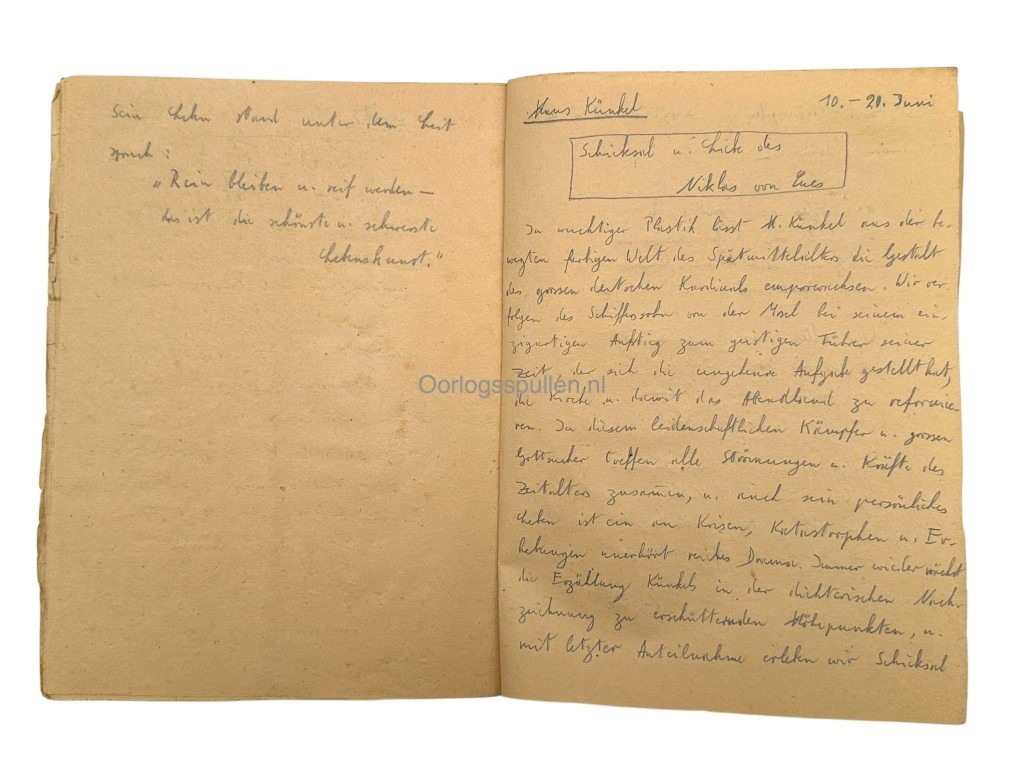 Sein Leben stand unter dem Leit
spruch:
„Rein bleiben u. reif werden –
das ist die schönste u. schwerste
Lebenskunst."
Hans Künkel
10. – 20. Juni
Schicksal u. Liebe des
Niklas von Cues
In wuchtiger Plastik lässt H. Künkel aus der be-
wegten farbigen Welt des Spätmittelalters die Gestalt
des grossen deutschen Kardinals emporwachsen. Wir ver
folgen des Schifferssohn von der Mosel bei seinem ein-
zigartigen Aufstieg zum geistigen Führer seiner
Zeit, der sich die ungeheure Aufgabe gestellt hat,
die Kirche u. damit das Abendland zu reformie-
ren. In diesem leidenschaftlichen Kämpfer u. grossen
Gottsucher treffen alle Strömungen u. Kräfte des
Zeitalters zusammen, u. auch sein persönliches
Leben ist ein an Krisen, Katastrophen u. Er-
hebungen unerhört reiches Drama. Immer wieder wächst
die Erzählung Künkels in der dichterischen Nach-
zeichnung zu erschütternden Höhepunkten, u.
mit letzter Anteilnahme erleben wir Schicksal
Oorlogsspullen.nl